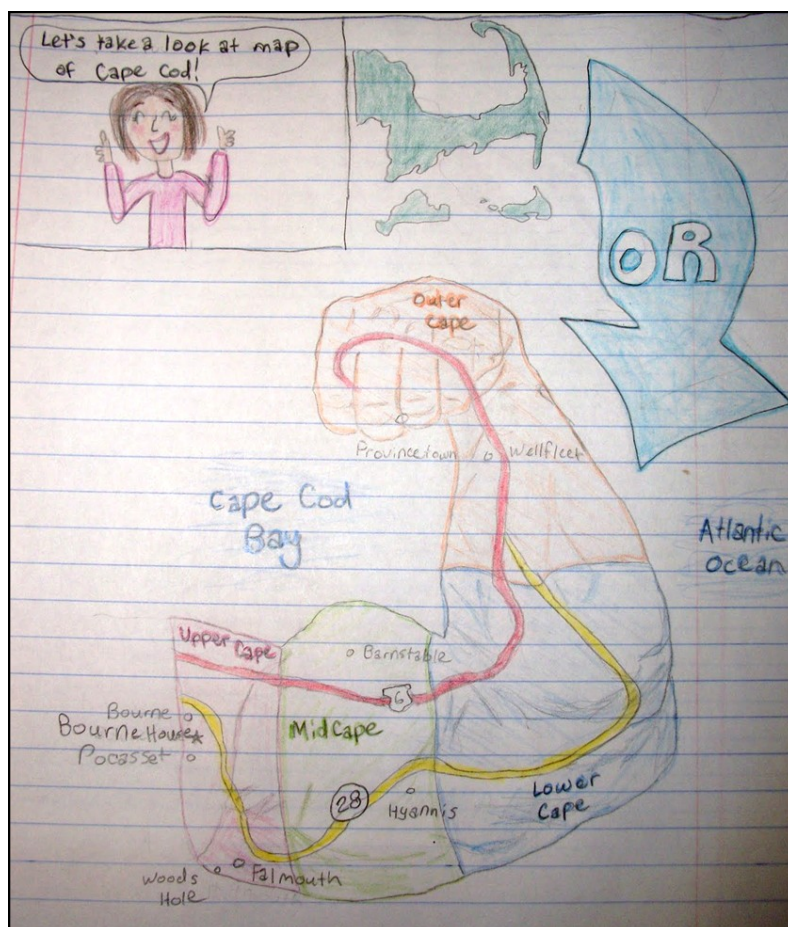 Let's take a look at map
of Cape Cod!
OR
Outer
Cape
Provincetown
Wellfleet
Cape Cod
Bay
Atlantic
Ocean
Upper Cape
Barnstable
6
Bourne
Bourne House
Pocasset
Mid Cape
28
Hyannis
Lower
Cape
Woods
Hole
Falmouth